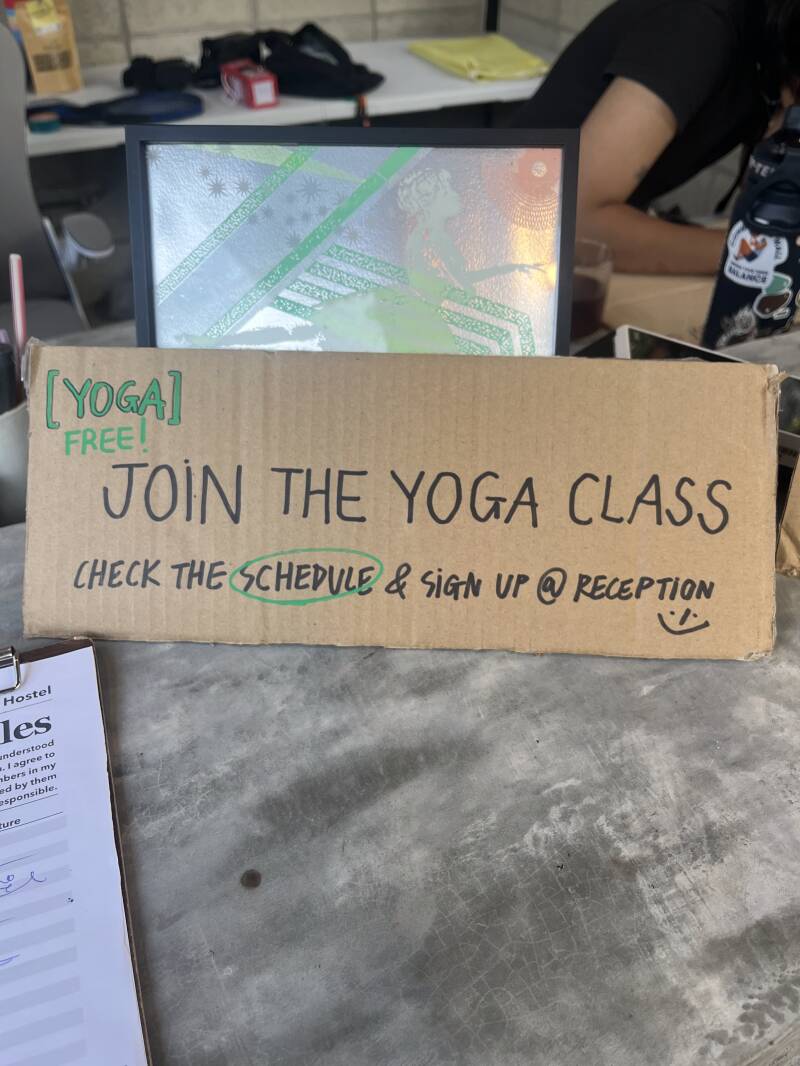 [YOGA]
FREE!
JOIN THE YOGA CLASS
CHECK THE SCHEDULE & SIGN UP @ RECEPTION
Hostel
les
understood
. I agree to
mbers in my
ed by them
esponsible.
ture